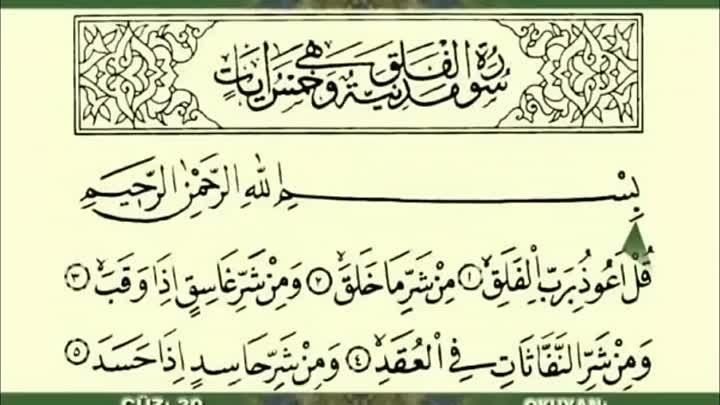 سُورَةُ الْفَلَقِ مَدَنِيَّةٌ وَهِيَ خَمْسُ اٰيَاتٍ
بِسْــــــمِ اللهِ الرَّحْمٰنِ الرَّحٖيمِ
قُلْ اَعُوذُ بِرَبِّ الْفَلَقِۙ ﴿١﴾ مِنْ شَرِّ مَا خَلَقَۙ ﴿٢﴾ وَمِنْ شَرِّ غَاسِقٍ اِذَا وَقَبَۙ ﴿٣﴾
وَمِنْ شَرِّ النَّفَّاثَاتِ فِي الْعُقَدِۙ ﴿٤﴾ وَمِنْ شَرِّ حَاسِدٍ اِذَا حَسَدَ ﴿٥﴾
CÜZ: 30 OKUYAN: